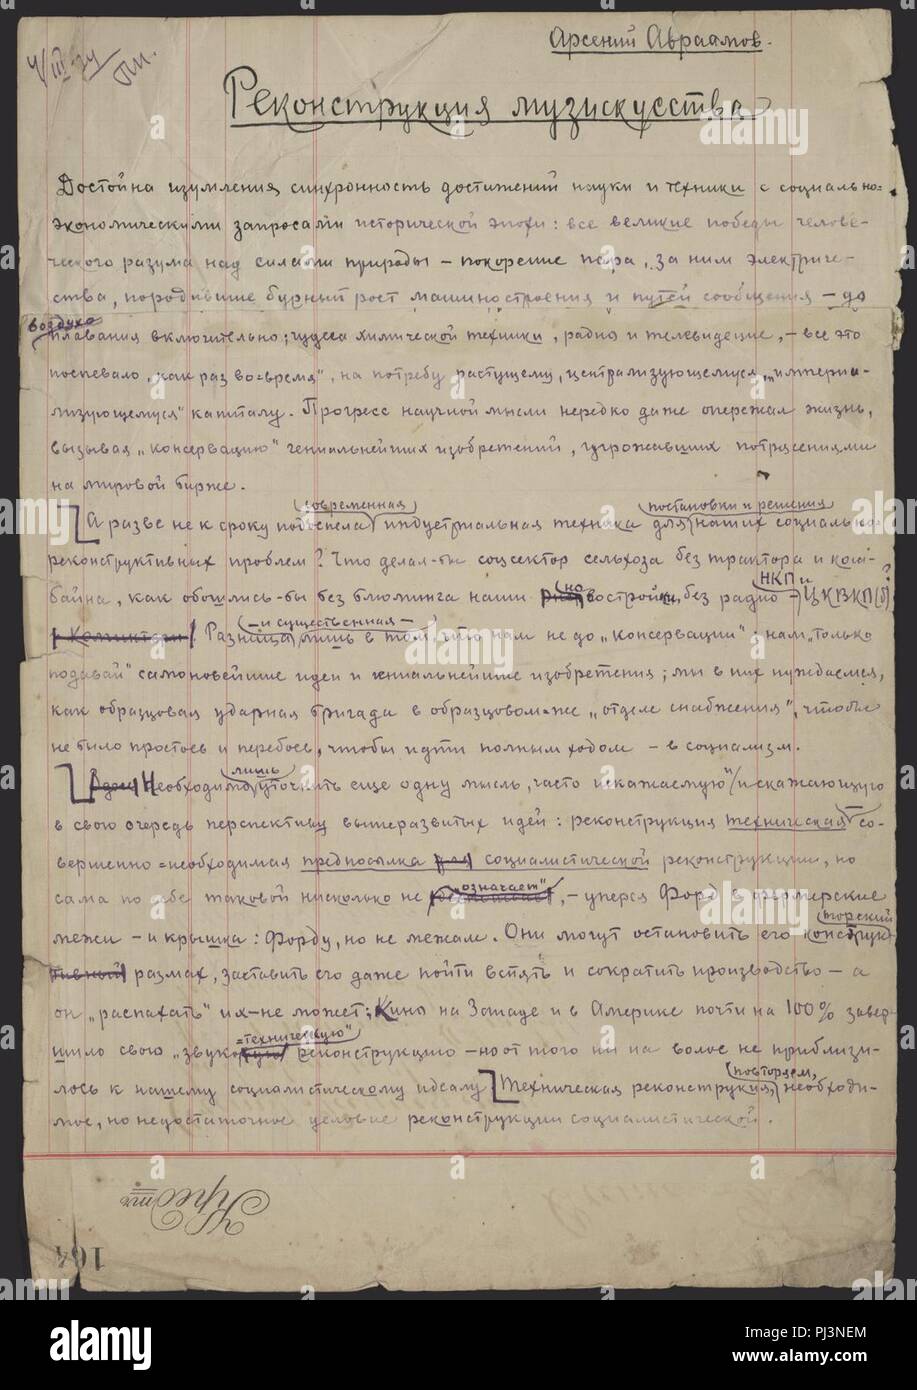 Арсений Авраамов.
Реконструкция музискусства
Достойна изумления синхронность достижений науки и техники с социально=
экономическими запросами исторической эпохи: все великие победы челове-
ческого разума над силами природы – покорение пара, за ним электриче-
ства, породившие бурный рост машиностроения и путей сообщения – до
воздухо
плавания включительно; чудеса химической техники, радио и телевидение, – все это
поспевало „как раз во=время", на потребу растущему, централизующемуся, „империа-
лизующемуся" капиталу. Прогресс научной мысли нередко даже опережал жизнь,
вызывая „консервацию" гениальнейших изобретений, угрожавших потрясениями
на мировой бирже.
современная постановки и решения
А разве не к сроку подоспела индустриальная техника для наших социально-
реконструктивных проблем? Что делал-бы соцсектор сельхоза без трактора и ком-
НКП и
байна, как обошлись-бы без блюминга наши но востройки, без радио – ЦКВКП(б)?
– и существенная –
Разница лишь в том, что нам не до „консервации"; нам „только
подавай" самоновейшие идеи и гениальнейшие изобретения; мы в них нуждаемся,
как образцовая ударная бригада в образцовом=же „отделе снабжения", чтобы
не было простоев и перебоев, чтобы идти полным ходом – в социализм.
лишь
Необходимо уточнить еще одну мысль, часто искажаемую (и искажающую
в свою очередь перспективу вышеразвитых идей: реконструкция техническая – со-
вершенно=необходимая предпосылка социалистической реконструкции, но
„означает"
сама по себе таковой нисколько не , – уперся Форд в фермерские
торский
межи – и крышка: Форду, но не межам. Они могут остановить его конструк-
размах, заставить его даже пойти вспять и сократить производство – а
он „распахать" их – не может; Кино на Западе и в Америке почти на 100% завер-
=техническую"
шило свою „звуко реконструкцию – но от того ни на волос не приблизи-
повторяем,
лось к нашему социалистическому идеалу Техническая реконструкция, необходи-
мое, но недостаточное условие реконструкции социалистической.
164
alamy
PJ3NEM
www.alamy.com